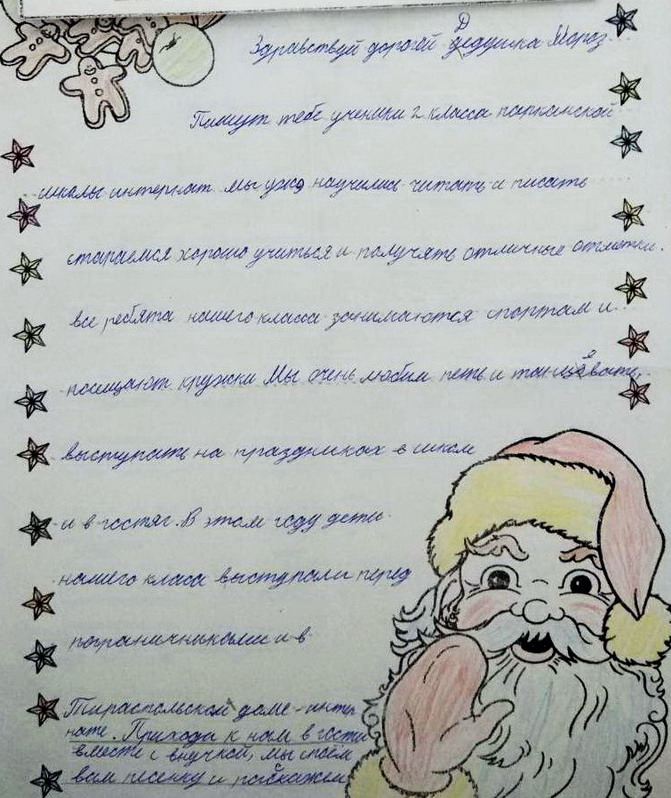 Здравствуй дорогей Дедушка Мороз.
Пишут тебе ученики 2 класса парканской
школы интернат. мы уже научились читать и писать
стараемся хорошо учиться и получять отличные отметки.
все ребята нашего класса занимаются спортам и
посещают кружки Мы очень любим петь и танцевать,
выступать на праздниках в школе
и в гостях. В этом году дети
нашего класа выступали перед
пограничниками и в
Тираспольском доме-интер
нате. Приходи к нам в гости
вместе с внучкой, мы споём
вам песенку и расскажем